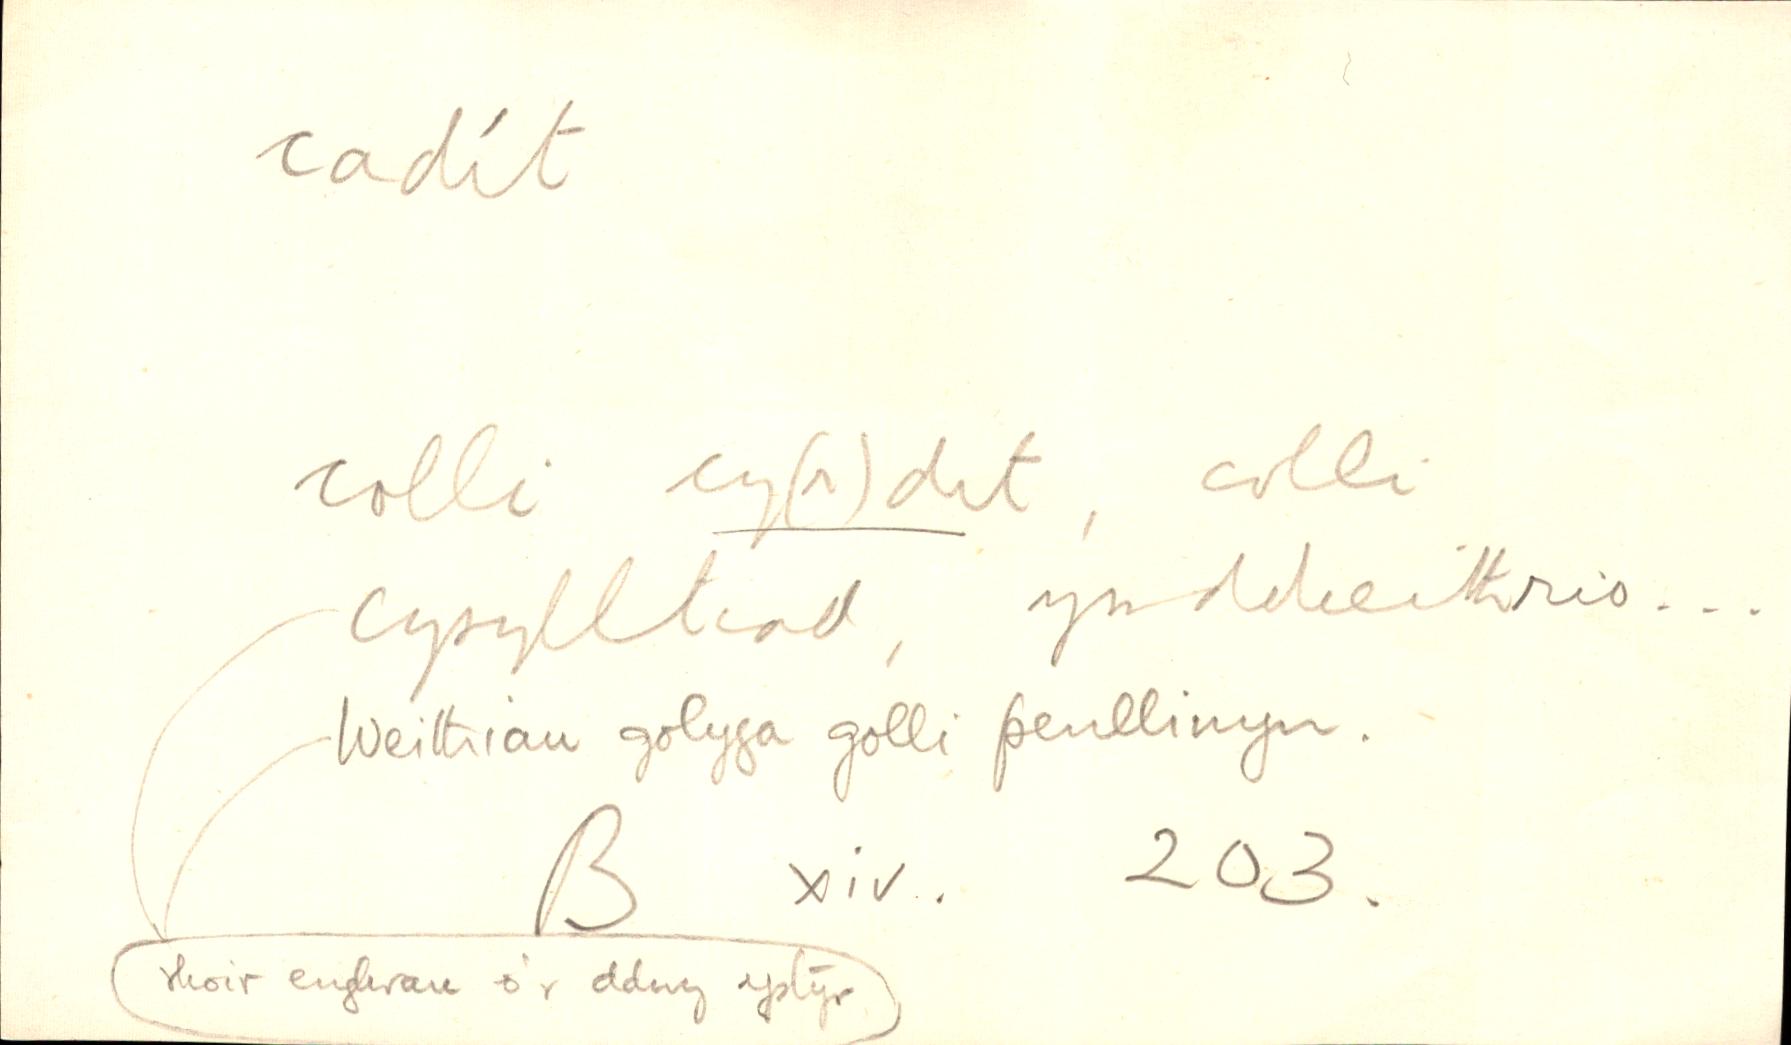 cadít
colli cy(r)dit, colli
cysylltiad, ymddieithrio...
Weithiau golyga golli penllinyn.
B xiv. 203.
rhoir enghrau o'r ddwy ystyr